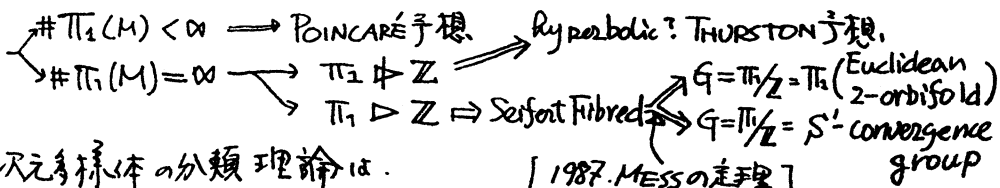 #π₁(M) < ∞ ⟹ POINCARÉ予想
hyperbolic? THURSTON予想,
#π₁(M) = ∞ → π₁ ⋫ ℤ
→ π₁ ▷ ℤ ⇒ Seifert Fibred
G = π₁/ℤ = π₁(Euclidean 2-orbifold)
G = π₁/ℤ = S¹-convergence group
次元多様体の分類理論は.
[1987. MESSの定理]